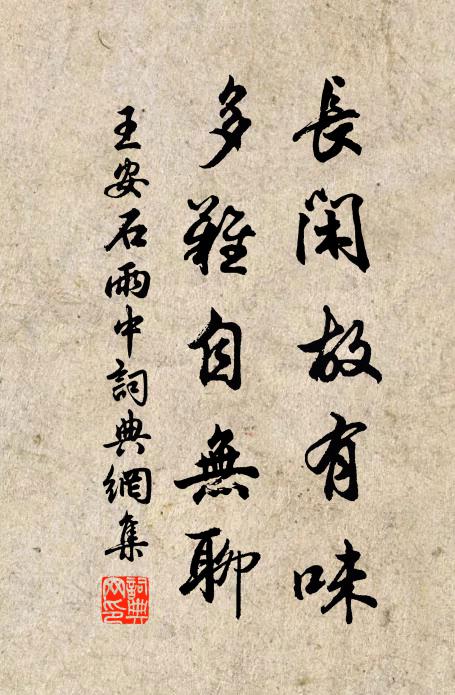 長閑故有味
多難自無聊
王安石雨中詞典網集
詞典網印